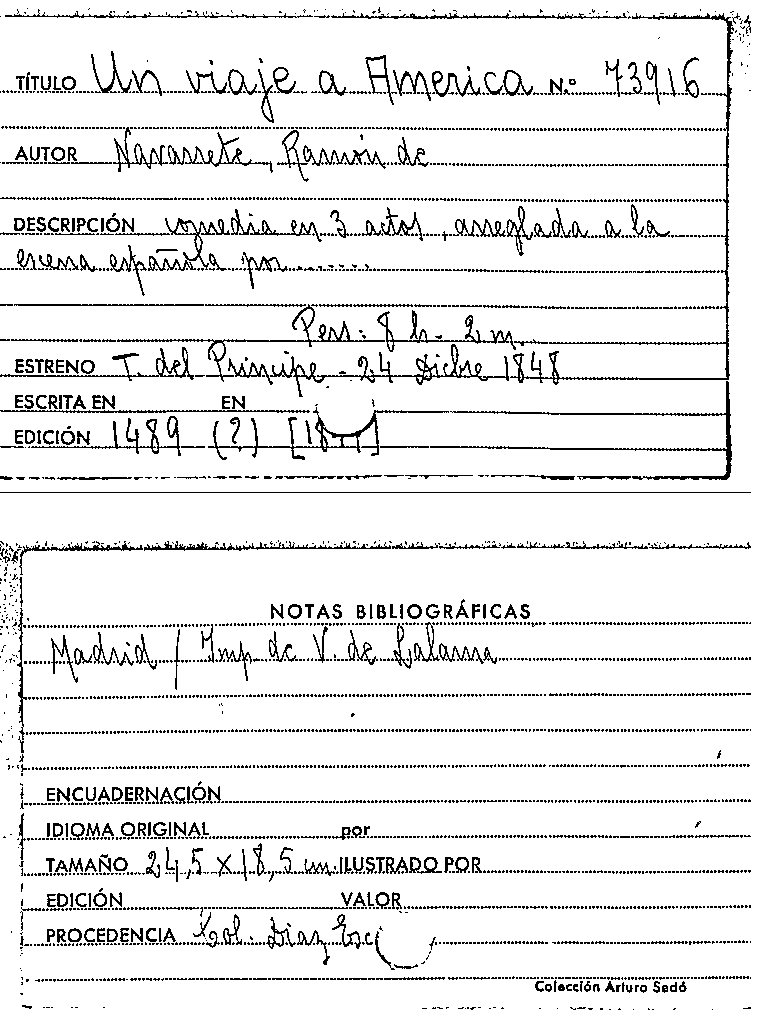 TÍTULO Un viaje a America N.º 73916
AUTOR Navarrete, Ramón de
DESCRIPCIÓN comedia en 3 actos, arreglada a la
escena española por.......
Pers: 8 h- 2 m.
ESTRENO T. del Príncipe - 24 Dicbre 1848
ESCRITA EN EN
EDICIÓN 1489 (?)
NOTAS BIBLIOGRÁFICAS
Madrid / Imp. de V. de Lalama
ENCUADERNACIÓN
IDIOMA ORIGINAL por
TAMAÑO 24,5 x 18,5 cm. ILUSTRADO POR
EDICIÓN VALOR
PROCEDENCIA Col. Diaz
Colección Arturo Sedó